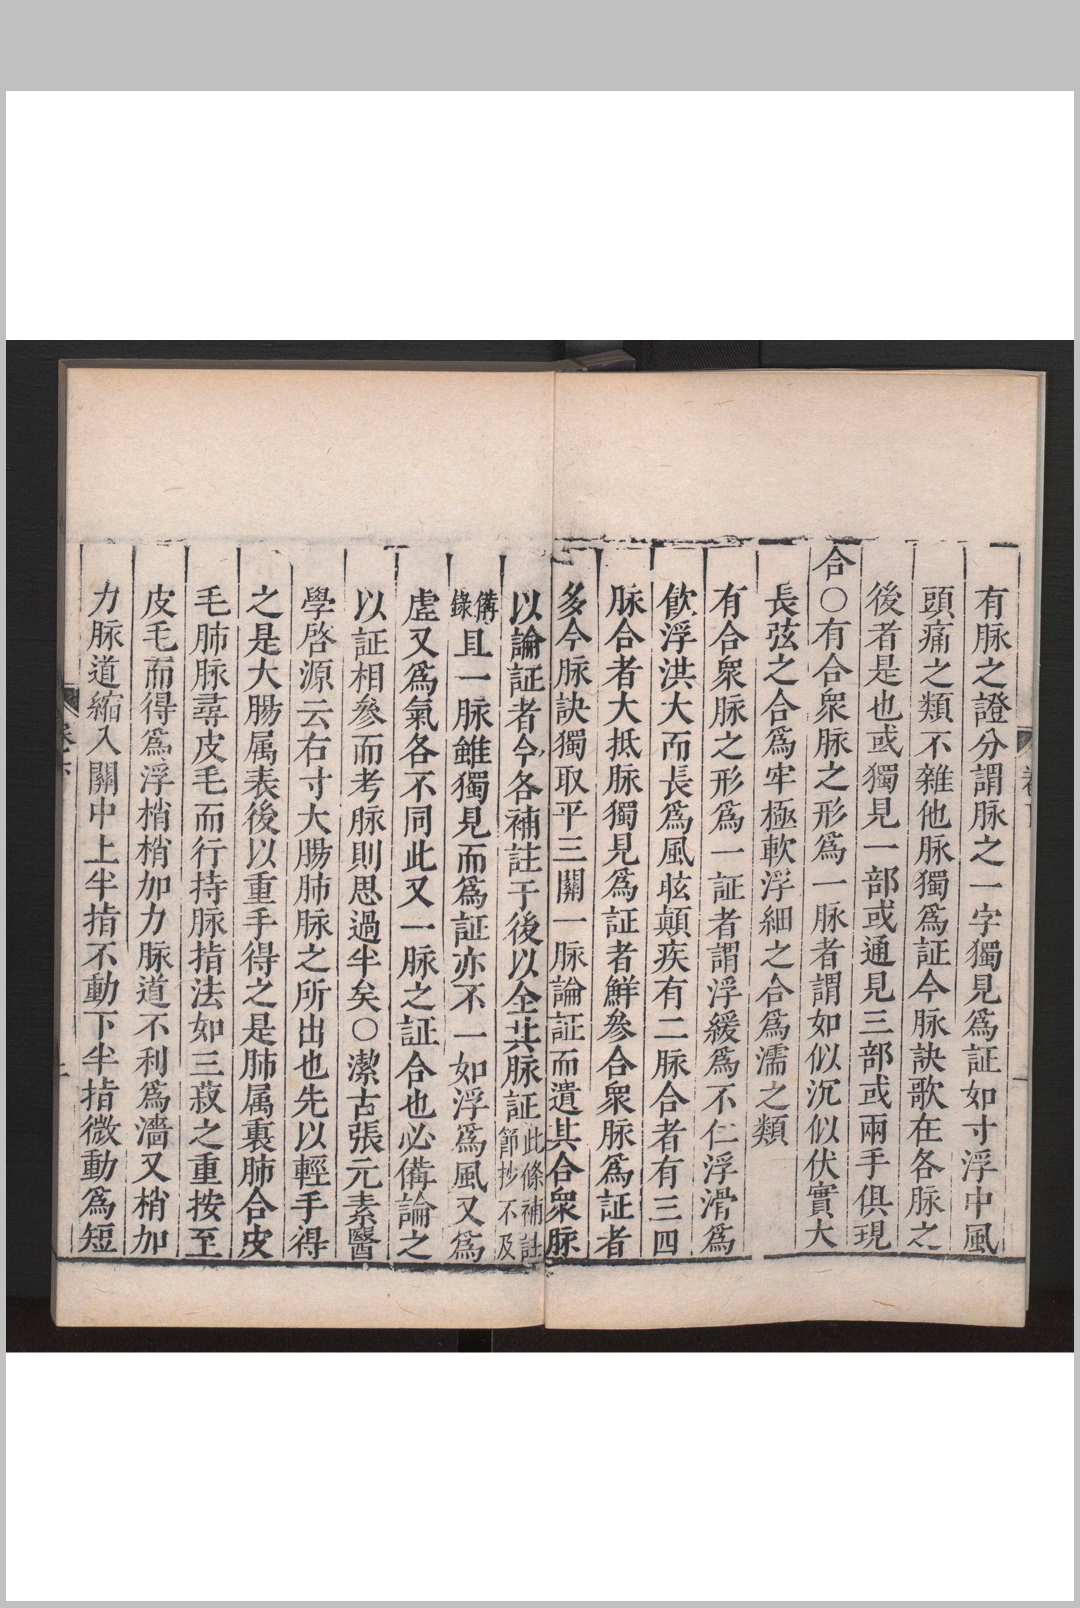 有脉之證分謂脉之一字獨見為証如寸浮中風
頭痛之類不雜他脉獨為証今脉訣歌在各脉之
後者是也或獨見一部或通見三部或兩手俱現
合○有合衆脉之形為一脉者謂如似沉似伏實大
長弦之合為牢極軟浮細之合為濡之類
有合衆脉之形為一証者謂浮緩為不仁浮滑為
飲浮洪大而長為風眩顛疾有二脉合者有三四
脉合者大抵脉獨見為証者鮮參合衆脉為証者
多今脉訣獨取平三關一脉論証而遺其合衆脉
以論証者今各補註于後以全其脉証此條補註節抄不及
備錄且一脉雖獨見而為証亦不一如浮為風又為
虚又為氣各不同此又一脉之証合也必備論之
以証相參而考脉則思過半矣○潔古張元素醫
學啓源云右寸大腸肺脉之所出也先以輕手得
之是大腸属表後以重手得之是肺属裏肺合皮
毛肺脉尋皮毛而行持脉指法如三菽之重按至
皮毛而得為浮梢梢加力脉道不利為濇又梢加
力脉道縮入關中上半指不動下半指微動為短